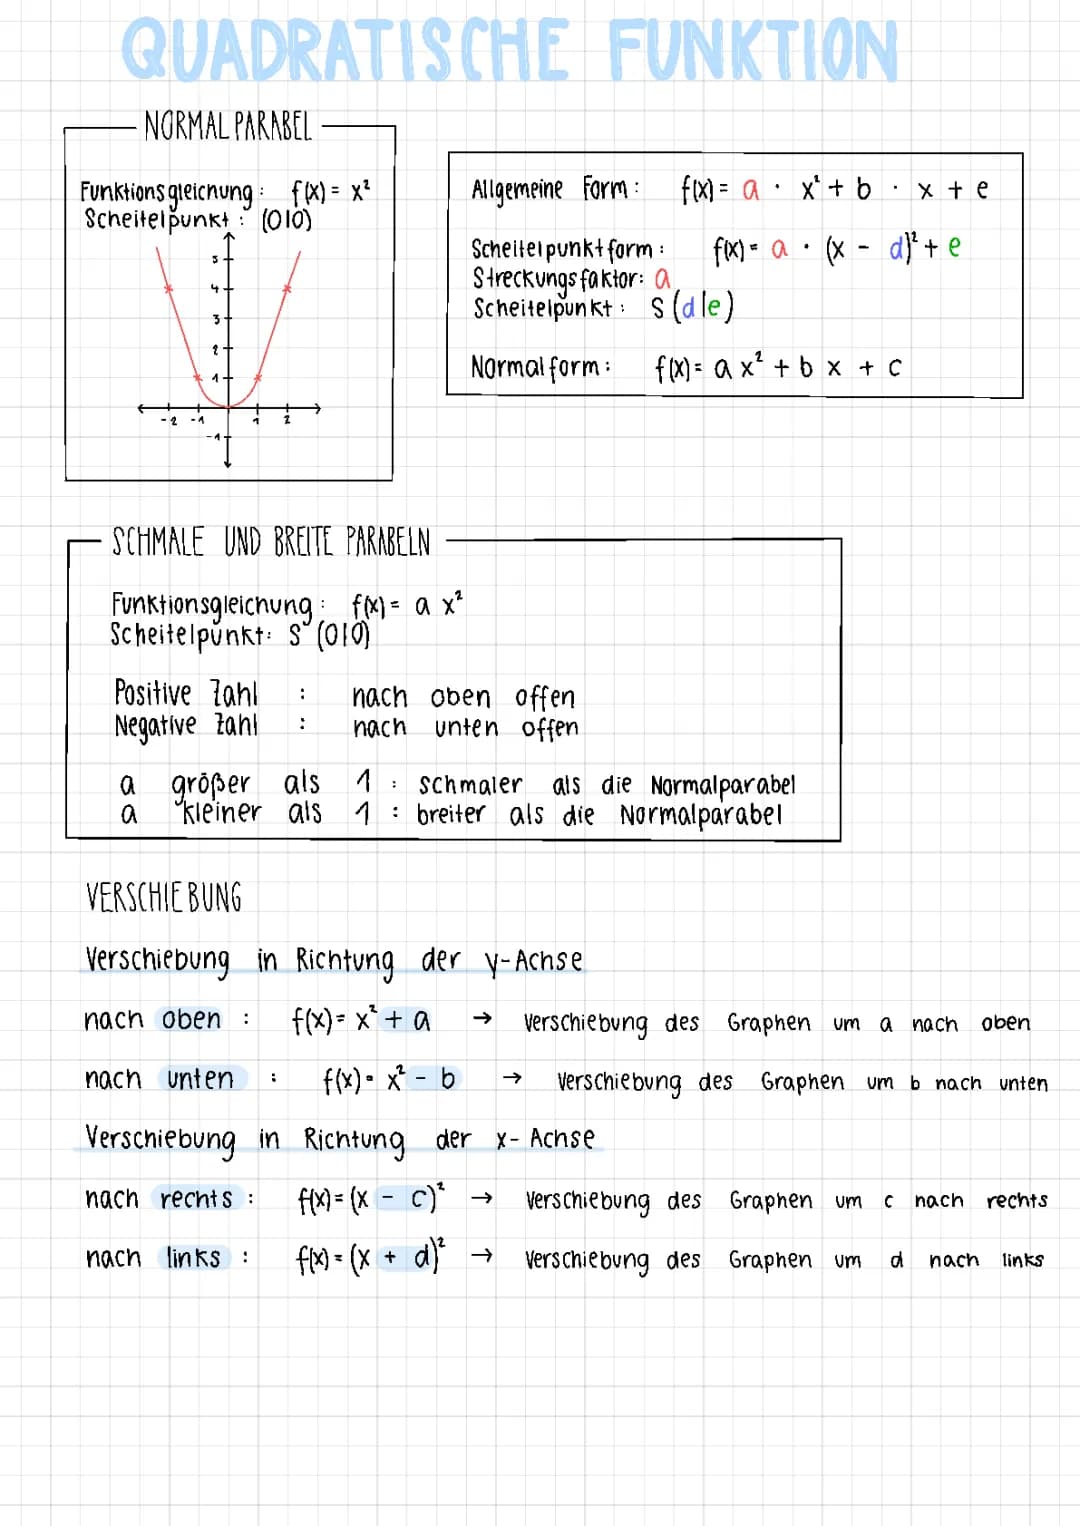 QUADRATISCHE FUNKTION
NORMALPARABEL
Funktionsgleichung: f(x) = x²
Scheitelpunkt: (0|0)
5
4
3
2
1
-2 -1 1 2
-1
Allgemeine Form: f(x) = a · x² + b · x + e
Scheitelpunktform: f(x) = a · (x - d)² + e
Streckungsfaktor: a
Scheitelpunkt: S (d|e)
Normalform: f(x) = a x² + b x + c
SCHMALE UND BREITE PARABELN
Funktionsgleichung: f(x) = a x²
Scheitelpunkt: S (0|0)
Positive Zahl : nach oben offen
Negative Zahl : nach unten offen
a größer als 1 : schmaler als die Normalparabel
a kleiner als 1 : breiter als die Normalparabel
VERSCHIEBUNG
Verschiebung in Richtung der y-Achse
nach oben : f(x) = x² + a → Verschiebung des Graphen um a nach oben
nach unten : f(x) = x² - b → Verschiebung des Graphen um b nach unten
Verschiebung in Richtung der x-Achse
nach rechts : f(x) = (x - c)² → Verschiebung des Graphen um c nach rechts
nach links : f(x) = (x + d)² → Verschiebung des Graphen um d nach links